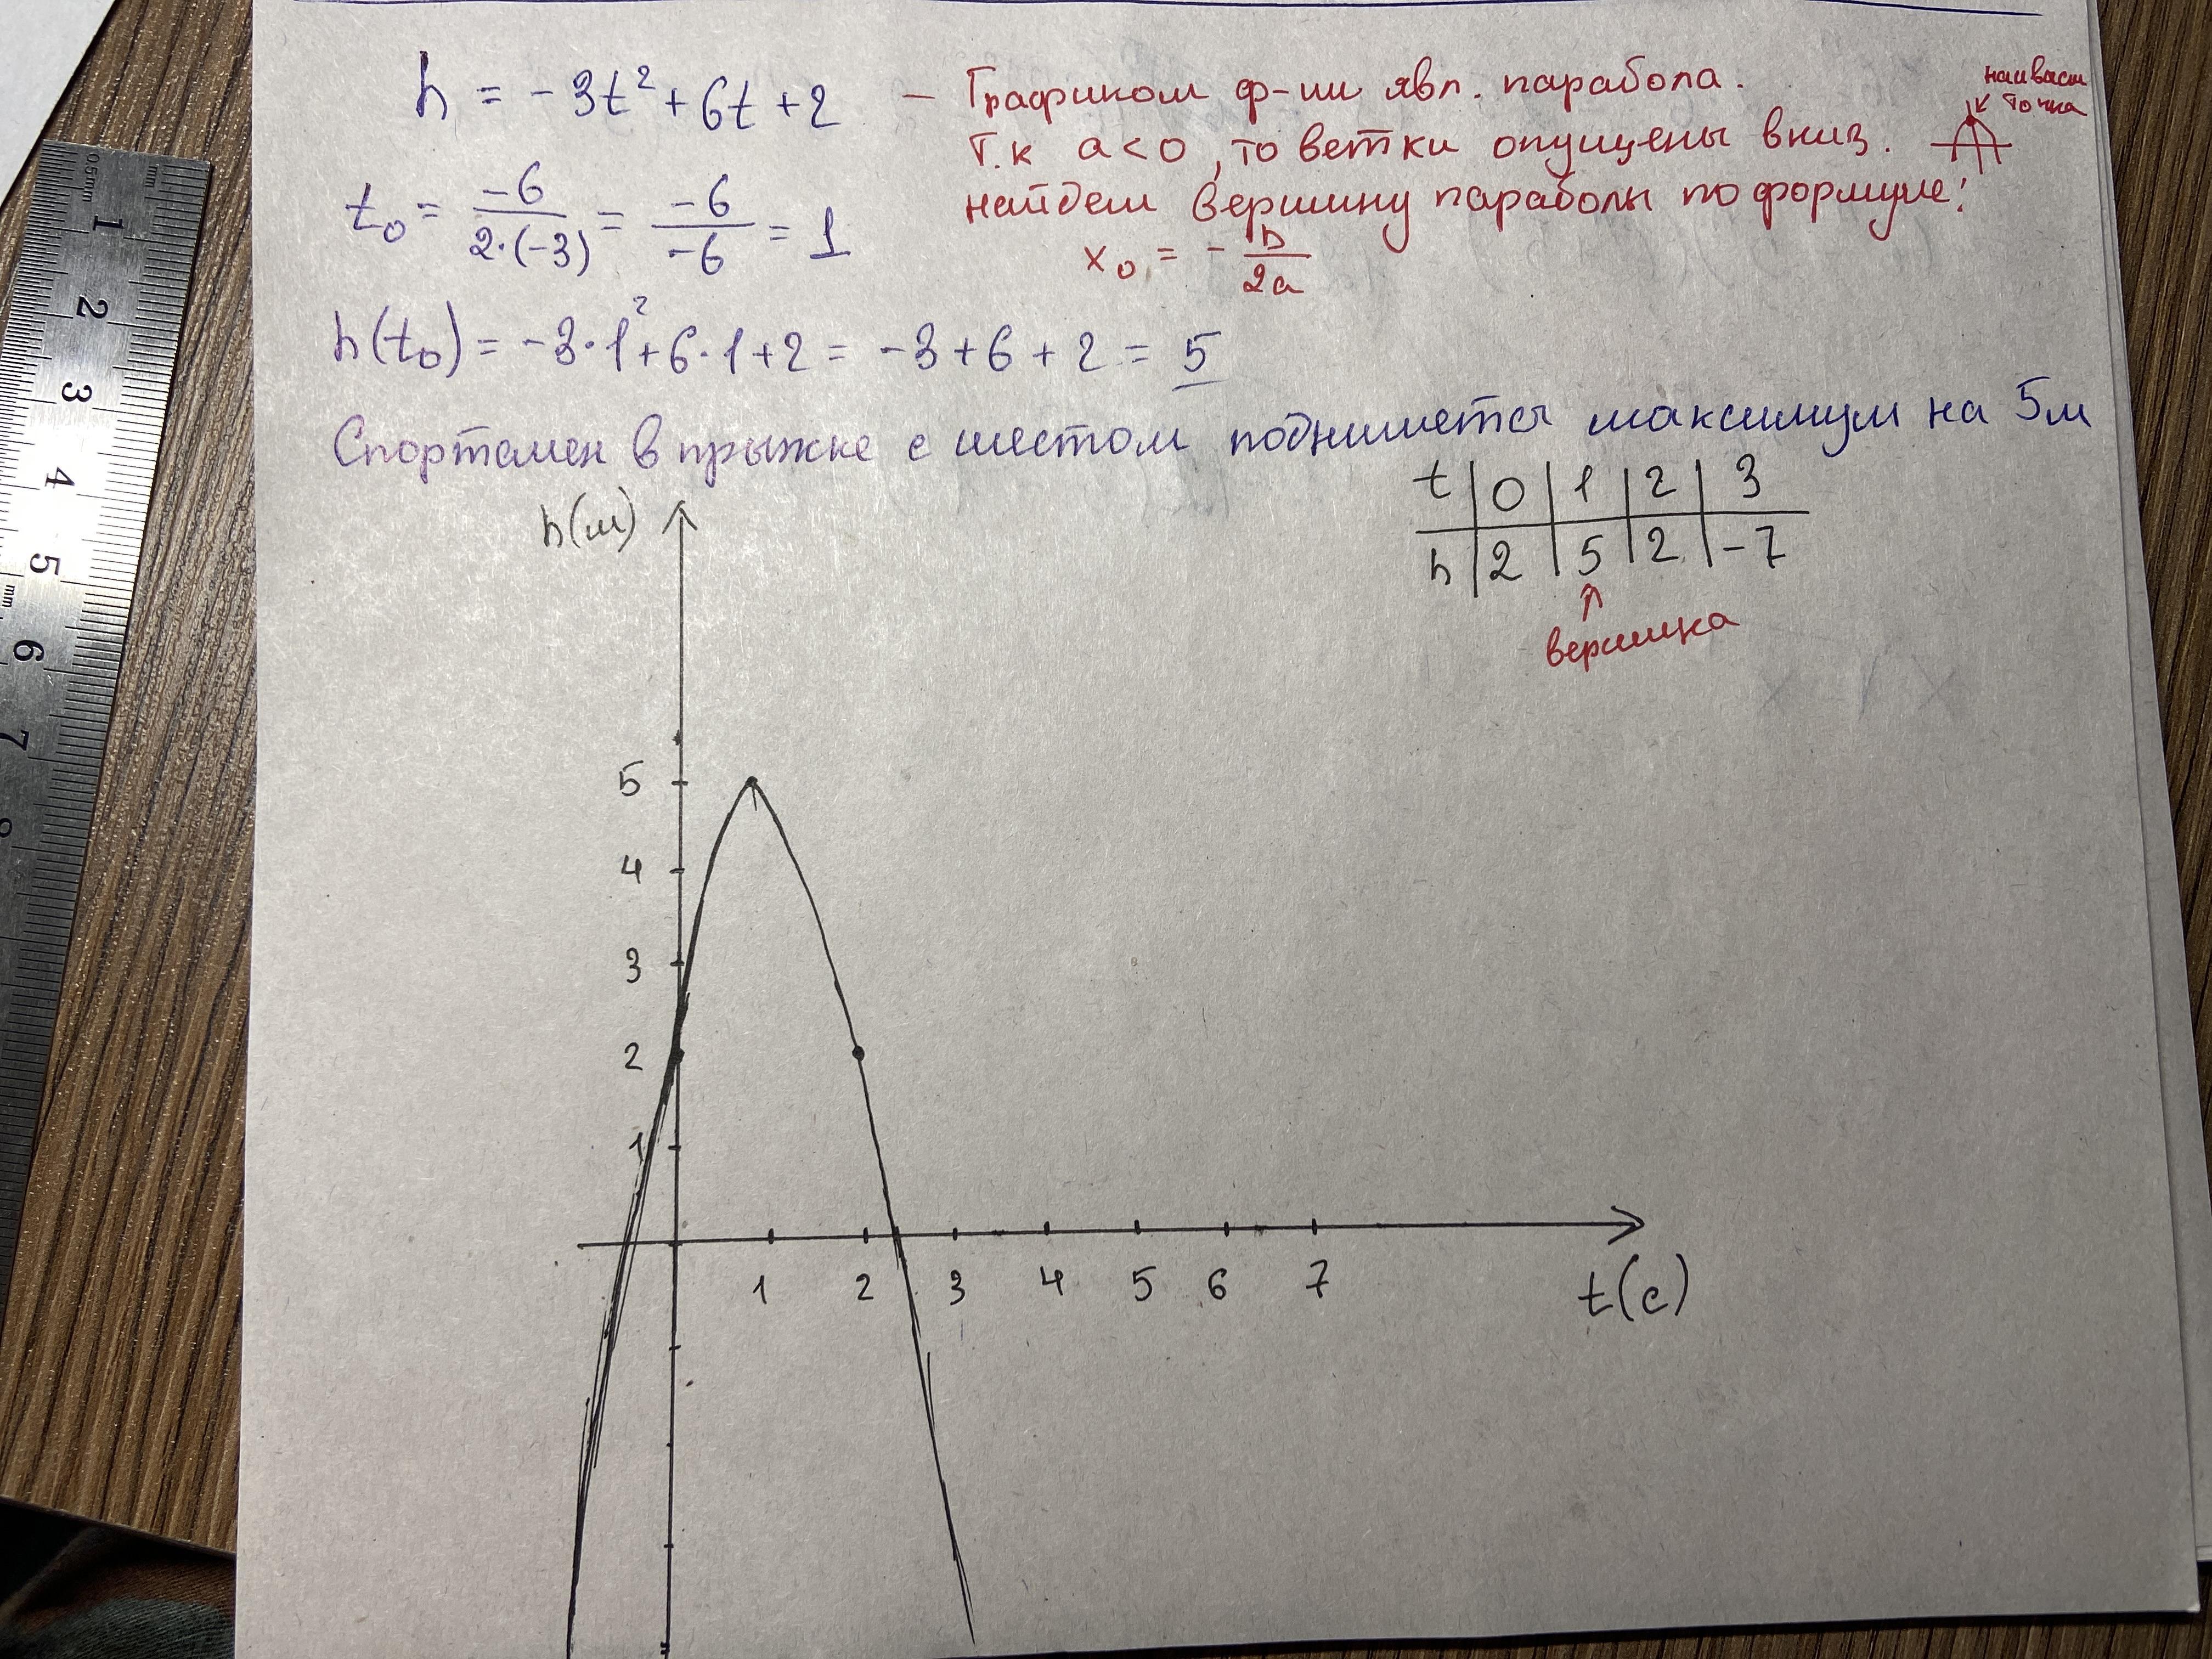 h = -3t² + 6t + 2 — Графиком ф-ии явл. парабола.
Т.к a<0, то ветки опущены вниз.
наивысш
точка
найдем вершину параболы по формуле:
x₀ = - b/2a
t₀ = -6/2·(-3) = -6/-6 = 1
h(t₀) = -3·1² + 6·1 + 2 = -3 + 6 + 2 = 5
Спортсмен в прыжке с шестом поднимется максимум на 5м
t | 0 | 1 | 2 | 3
h | 2 | 5 | 2 | -7
вершина
h(м)
5
4
3
2
1
1 2 3 4 5 6 7
t(с)
0.5mm
mm
1
2
3
4
5
mm
6
7
8